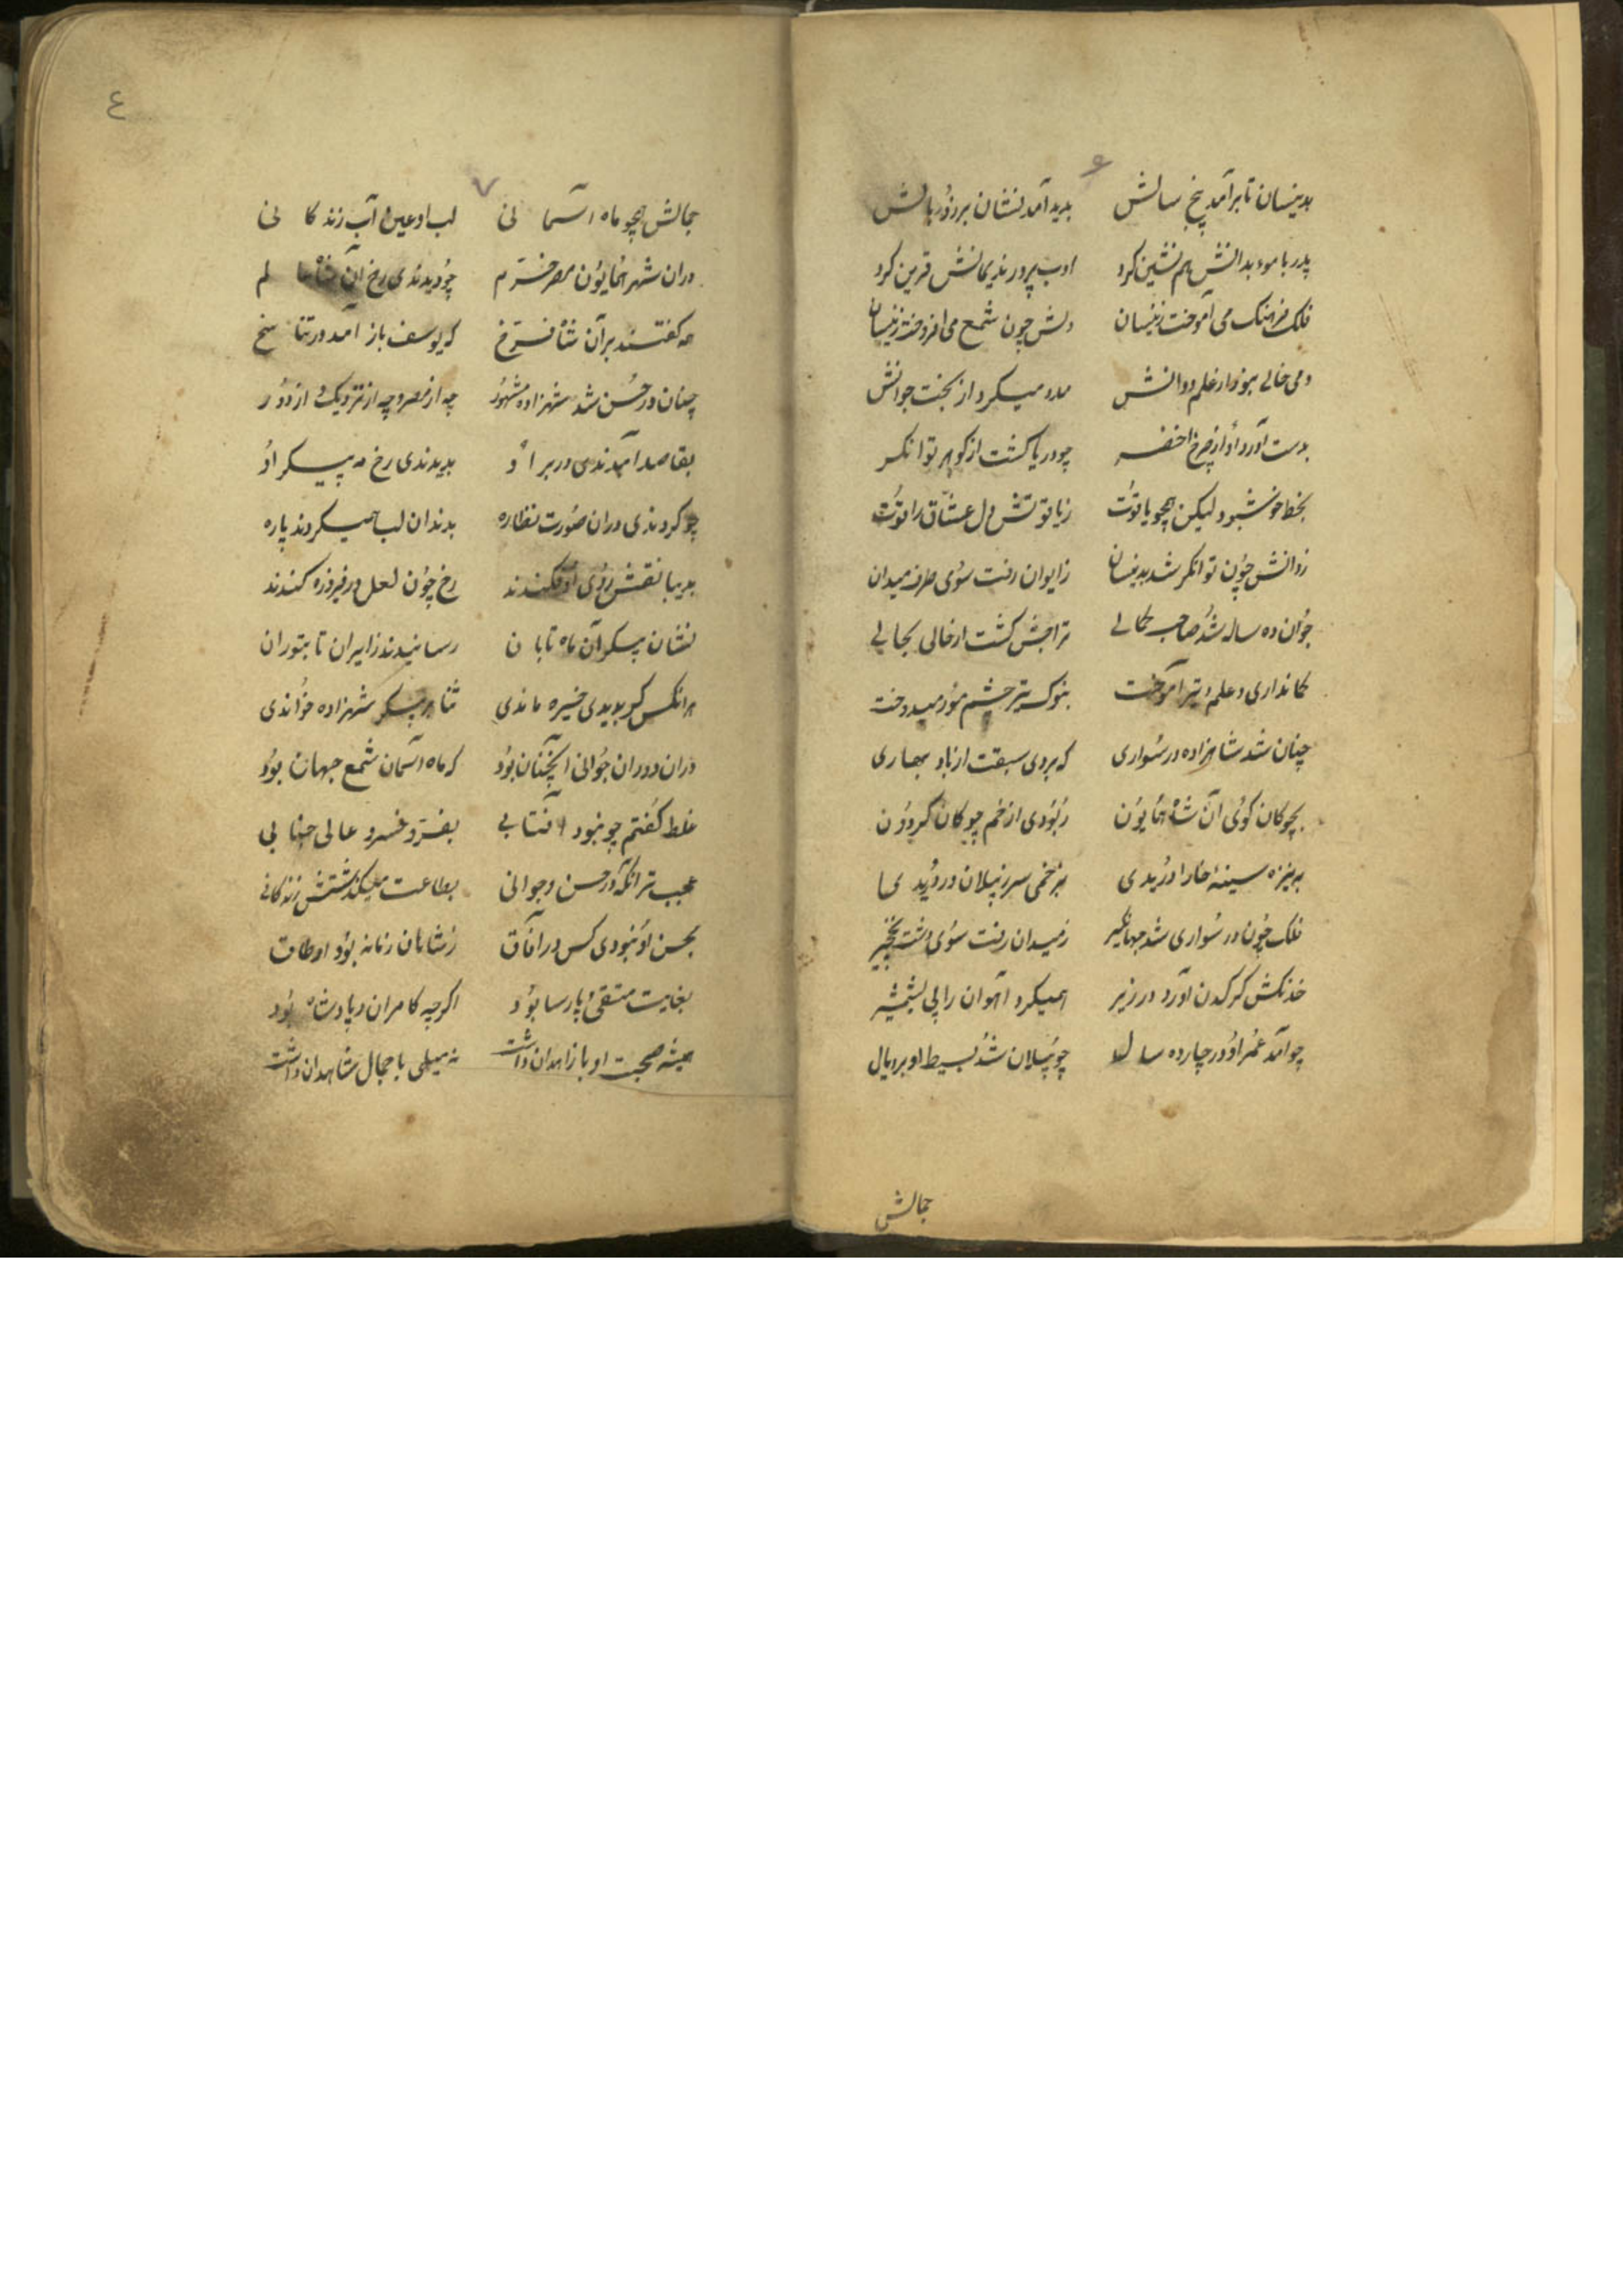 ۶
بدینسان تا برآمد پنج سالش بدید آمد نشان برزور بالش
پدر با موبدانش هم نشین کرد ادب پرور ندیمانش قرین کرد
فلک فرهنگ می آموخت زینسان دلش چون شمع می افروخت زینسان
دمی خالی نبود از علم و دانش مدد میکرد از بخت جوانش
بدست آورد او از چرخ اخضر چو دریا گشت از گوهر توانگر
بخط خوش بود لیکن همچو یاقوت ز یاقوتش دل عشاق را قوت
ز دانش چون توانگر شد بدینسان ز ایوان رفت سوی میدان
جوان ده ساله شد صاحب کمالی گشت از حالی بحالی
کمانداری و علم تیر آموخت بنوک تیر چشم مور میدوخت
چنان شد شاهزاده در سواری که بردی سبقت از باد بهاری
بچوکان کوی آن شاه همایون ربودی از خم چوکان کردون
به نیزه سینه خارا دریدی بزخمی سر ز پیلان
فلک چون در سواری شد جهانگیر ز میدان رفت سوی دشت نخچیر
خدنکش کرکدن آورد در زیر همیکرد آهوان را پی بشمشیر
چو آمد عمر او در چارده سال چو پیلان شد بسیط او بر و یال
جمالش
٤
۷
جمالش همچو ماه آسمانی لب او عین آب زندکانی
دران شهر همایون مصر خرم چو دیدندی رخ آن شاه
که گفتند بر آن شاه فرخ که یوسف باز آمد در تناسخ
چنان در حسن شد شهزاده مشهور چه از مصر و چه از نزدیک و از دور
بقاصد آمدندی در بر او بدیدندی رخ مه پیکر او
چو کردندی دران صورت نظاره بدندان لب همیکردند پاره
بدیبا نقش روی او فکندند رخ چون لعل در فیروزه کندند
نشان پیکر آن ماه تابان رسانیدند ز ایران تا بتوران
هرانکس کو بدیدی خیره ماندی شهزاده خواندی
دران دوران جوانی آنچنان بود که ماه آسمان شمع جهان بود
غلط گفتم چو نبود آفتابی بفر و خسرو عالی جنابی
عجب تر آنکه در حسن و جوانی بطاعت میگذشتش زندکانی
بحسن او نبودی کس در آفاق ز شاهان زمانه بود او طاق
بغایت متقی و پارسا بود اکرچه کامران و پادشاه بود
همیشه صحبت او با زاهدان داشت نه میلی با جمال شاهدان داشت